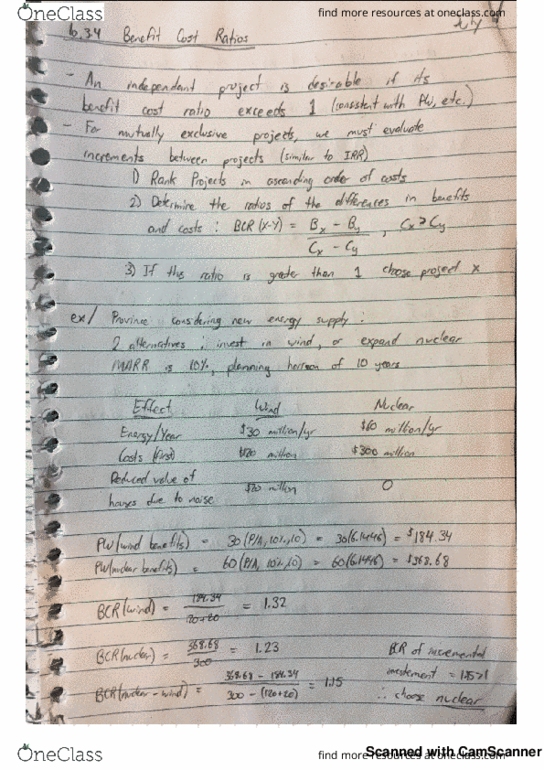 OneClass
find more resources at oneclass.com
6.34 Benefit Cost Ratios
- An independant project is desirable if its
benefit cost ratio exceeds 1 (consistent with PW, etc.)
- For mutually exclusive projects, we must evaluate
increments between projects (similar to IRR)
1) Rank Projects in ascending order of costs
2) Determine the ratios of the differences in benefits
and costs : BCR (X-Y) = Bx - By / Cx - Cy , Cx > Cy
3) If this ratio is greater than 1 choose project X
ex/ Province considering new energy supply :
2 alternatives : invest in wind, or expand nuclear
MARR is 10%, planning horizon of 10 years
Effect Wind Nuclear
Energy/Year $30 million/yr $60 million/yr
Costs (first) $120 million $300 million
Reduced value of
houses due to noise $20 million 0
PW(wind benefits) = 30(P/A,10%,10) = 30(6.1446) = $184.34
PW(nuclear benefits) = 60(P/A, 10%,10) = 60(6.1446) = $368.68
BCR(wind) = 184.34 / 120+20 = 1.32
BCR(nuclear) = 368.68 / 300 = 1.23
BCR(nuclear - wind) = 368.68 - 184.34 / 300 - (120+20) = 1.15
BCR of incremental
investement = 1.15>1
∴ choose nuclear
OneClass
find more resources at oneclass.com
Scanned with CamScanner